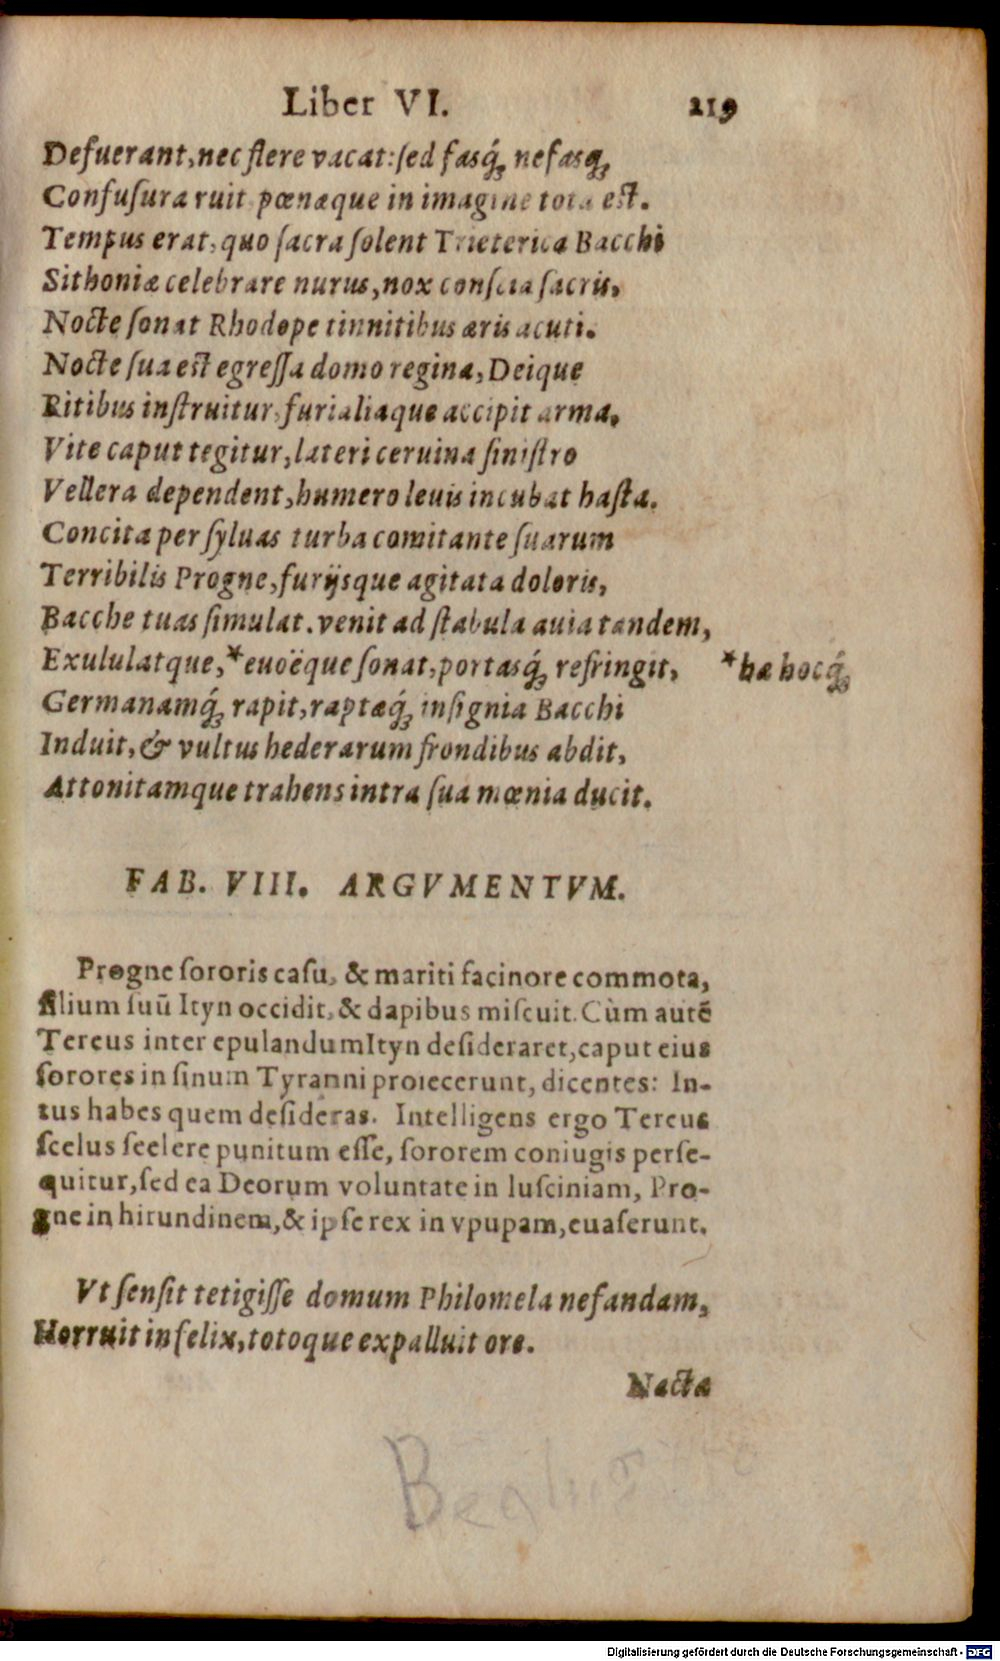 Liber VI. 219
Defuerant, nec flere vacat: sed fasq́; nefasq́;
Confusura ruit pœnæque in imagine tota est.
Tempus erat, quo sacra solent Trieterica Bacchi
Sithoniæ celebrare nurus, nox conscia sacris,
Nocte sonat Rhodope tinnitibus æris acuti.
Nocte sua est egressa domo regina, Deique
Ritibus instruitur, furialiaque accipit arma.
Vite caput tegitur, lateri ceruina sinistro
Vellera dependent, humero leuis incubat hasta.
Concita per syluas turba comitante suarum
Terribilis Progne, furijsque agitata doloris,
Bacche tuas simulat. venit ad stabula auia tandem,
Exululatque, *euoëque sonat, portasq́; refringit, *hæ hocq́;
Germanamq́; rapit, raptæq́; insignia Bacchi
Induit, & vultus hederarum frondibus abdit,
Attonitamque trahens intra sua mœnia ducit.
FAB. VIII. ARGVMENTVM.
Progne sororis casu, & mariti facinore commota,
filium suū Ityn occidit, & dapibus miscuit. Cùm autē
Tereus inter epulandum Ityn desideraret, caput eius
sorores in sinum Tyranni proiecerunt, dicentes: In-
tus habes quem desideras. Intelligens ergo Tereus
scelus scelere punitum esse, sororem coniugis perse-
quitur, sed ea Deorum voluntate in lusciniam, Pro-
gne in hirundinem, & ipse rex in vpupam, euaserunt.
Vt sensit tetigisse domum Philomela nefandam,
Horruit infelix, totoque expalluit ore.
Nacta
Digitalisierung gefördert durch die Deutsche Forschungsgemeinschaft - DFG